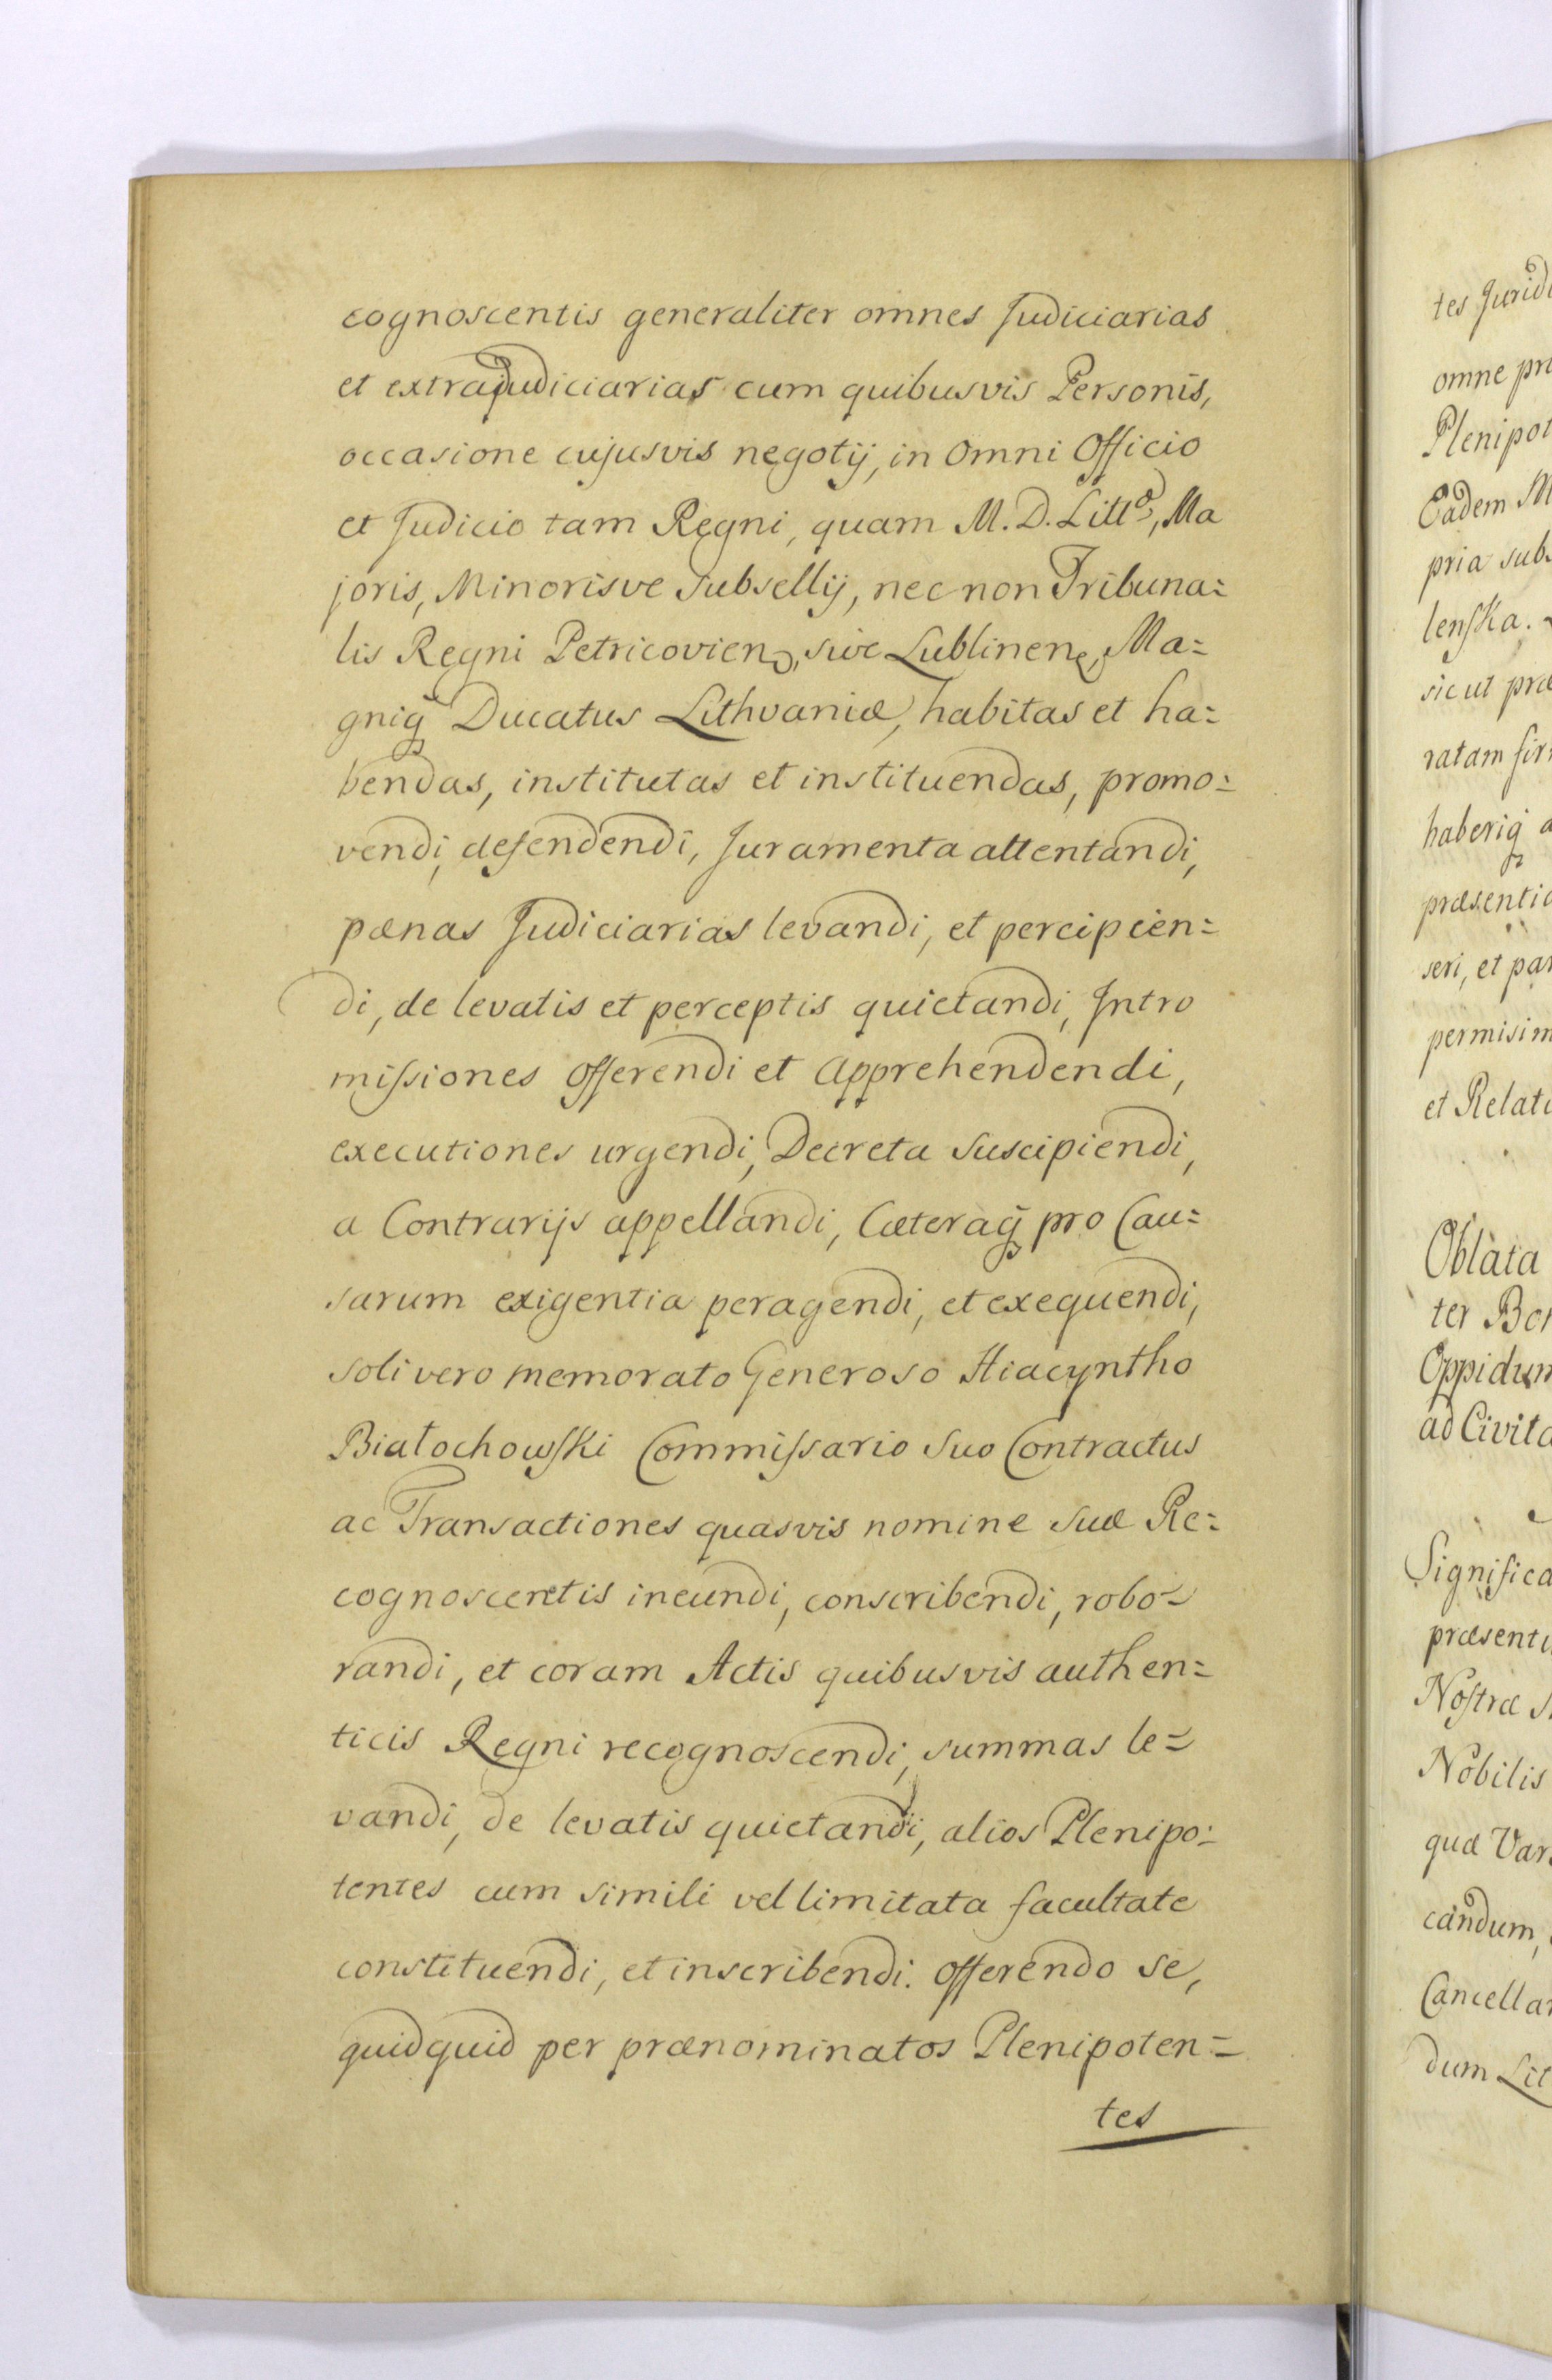 cognoscentis generaliter omnes Judiciarias
et extrajudiciarias cum quibusvis Personis,
occasione cujusvis negotij, in Omni Officio
et Judicio tam Regni, quam M. D. Litt., Ma
joris, Minorisve Subsellij, nec non Tribuna=
lis Regni Petricovien, sive Lublinen, Ma=
gniq̃ Ducatus Lithvaniæ, habitas et ha=
bendas, institutas et instituendas, promo=
vendi, defendendi, Juramenta attentandi,
pænas Judiciarias levandi, et percipien=
di, de levatis et perceptis quietandi, Intro
missiones offerendi et Apprehendendi,
executiones urgendi, Decreta suscipiendi,
a Contrarijs appellandi, Cæteraq̃ pro Cau=
sarum exigentia peragendi, et exequendi,
soli vero memorato Generoso Hiacyntho
Białochowski Commissario Suo Contractus
ac Transactiones quasvis nomine suæ Re=
cognoscentis ineundi, conscribendi, robo=
randi, et coram Actis quibusvis authen=
ticis Regni recognoscendi, summas le=
vandi, de levatis quietandi, alios Plenipo=
tentes cum simili vel limitata facultate
constituendi, et inscribendi. Offerendo se,
quidquid per prænominatos Plenipoten=
tes
tes Juridi
omne pr
Plenipot
Eadem M
pria subs
lenska.
sicut præ
ratam fir
haberiq̃ a
præsenti
seri, et par
permisim
et Relat
Oblata
ter Bo
Oppidum
ad Civita
Significa
præsenti
Nostræ S
Nobilis
quæ Var
candum,
Cancella
dum Lit